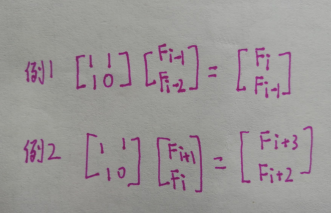 例1 [1 1 1 0] [Fi-1 Fi-2] = [Fi Fi-1]
例2 [1 1 1 0] [Fi+1 Fi] = [Fi+3 Fi+2]